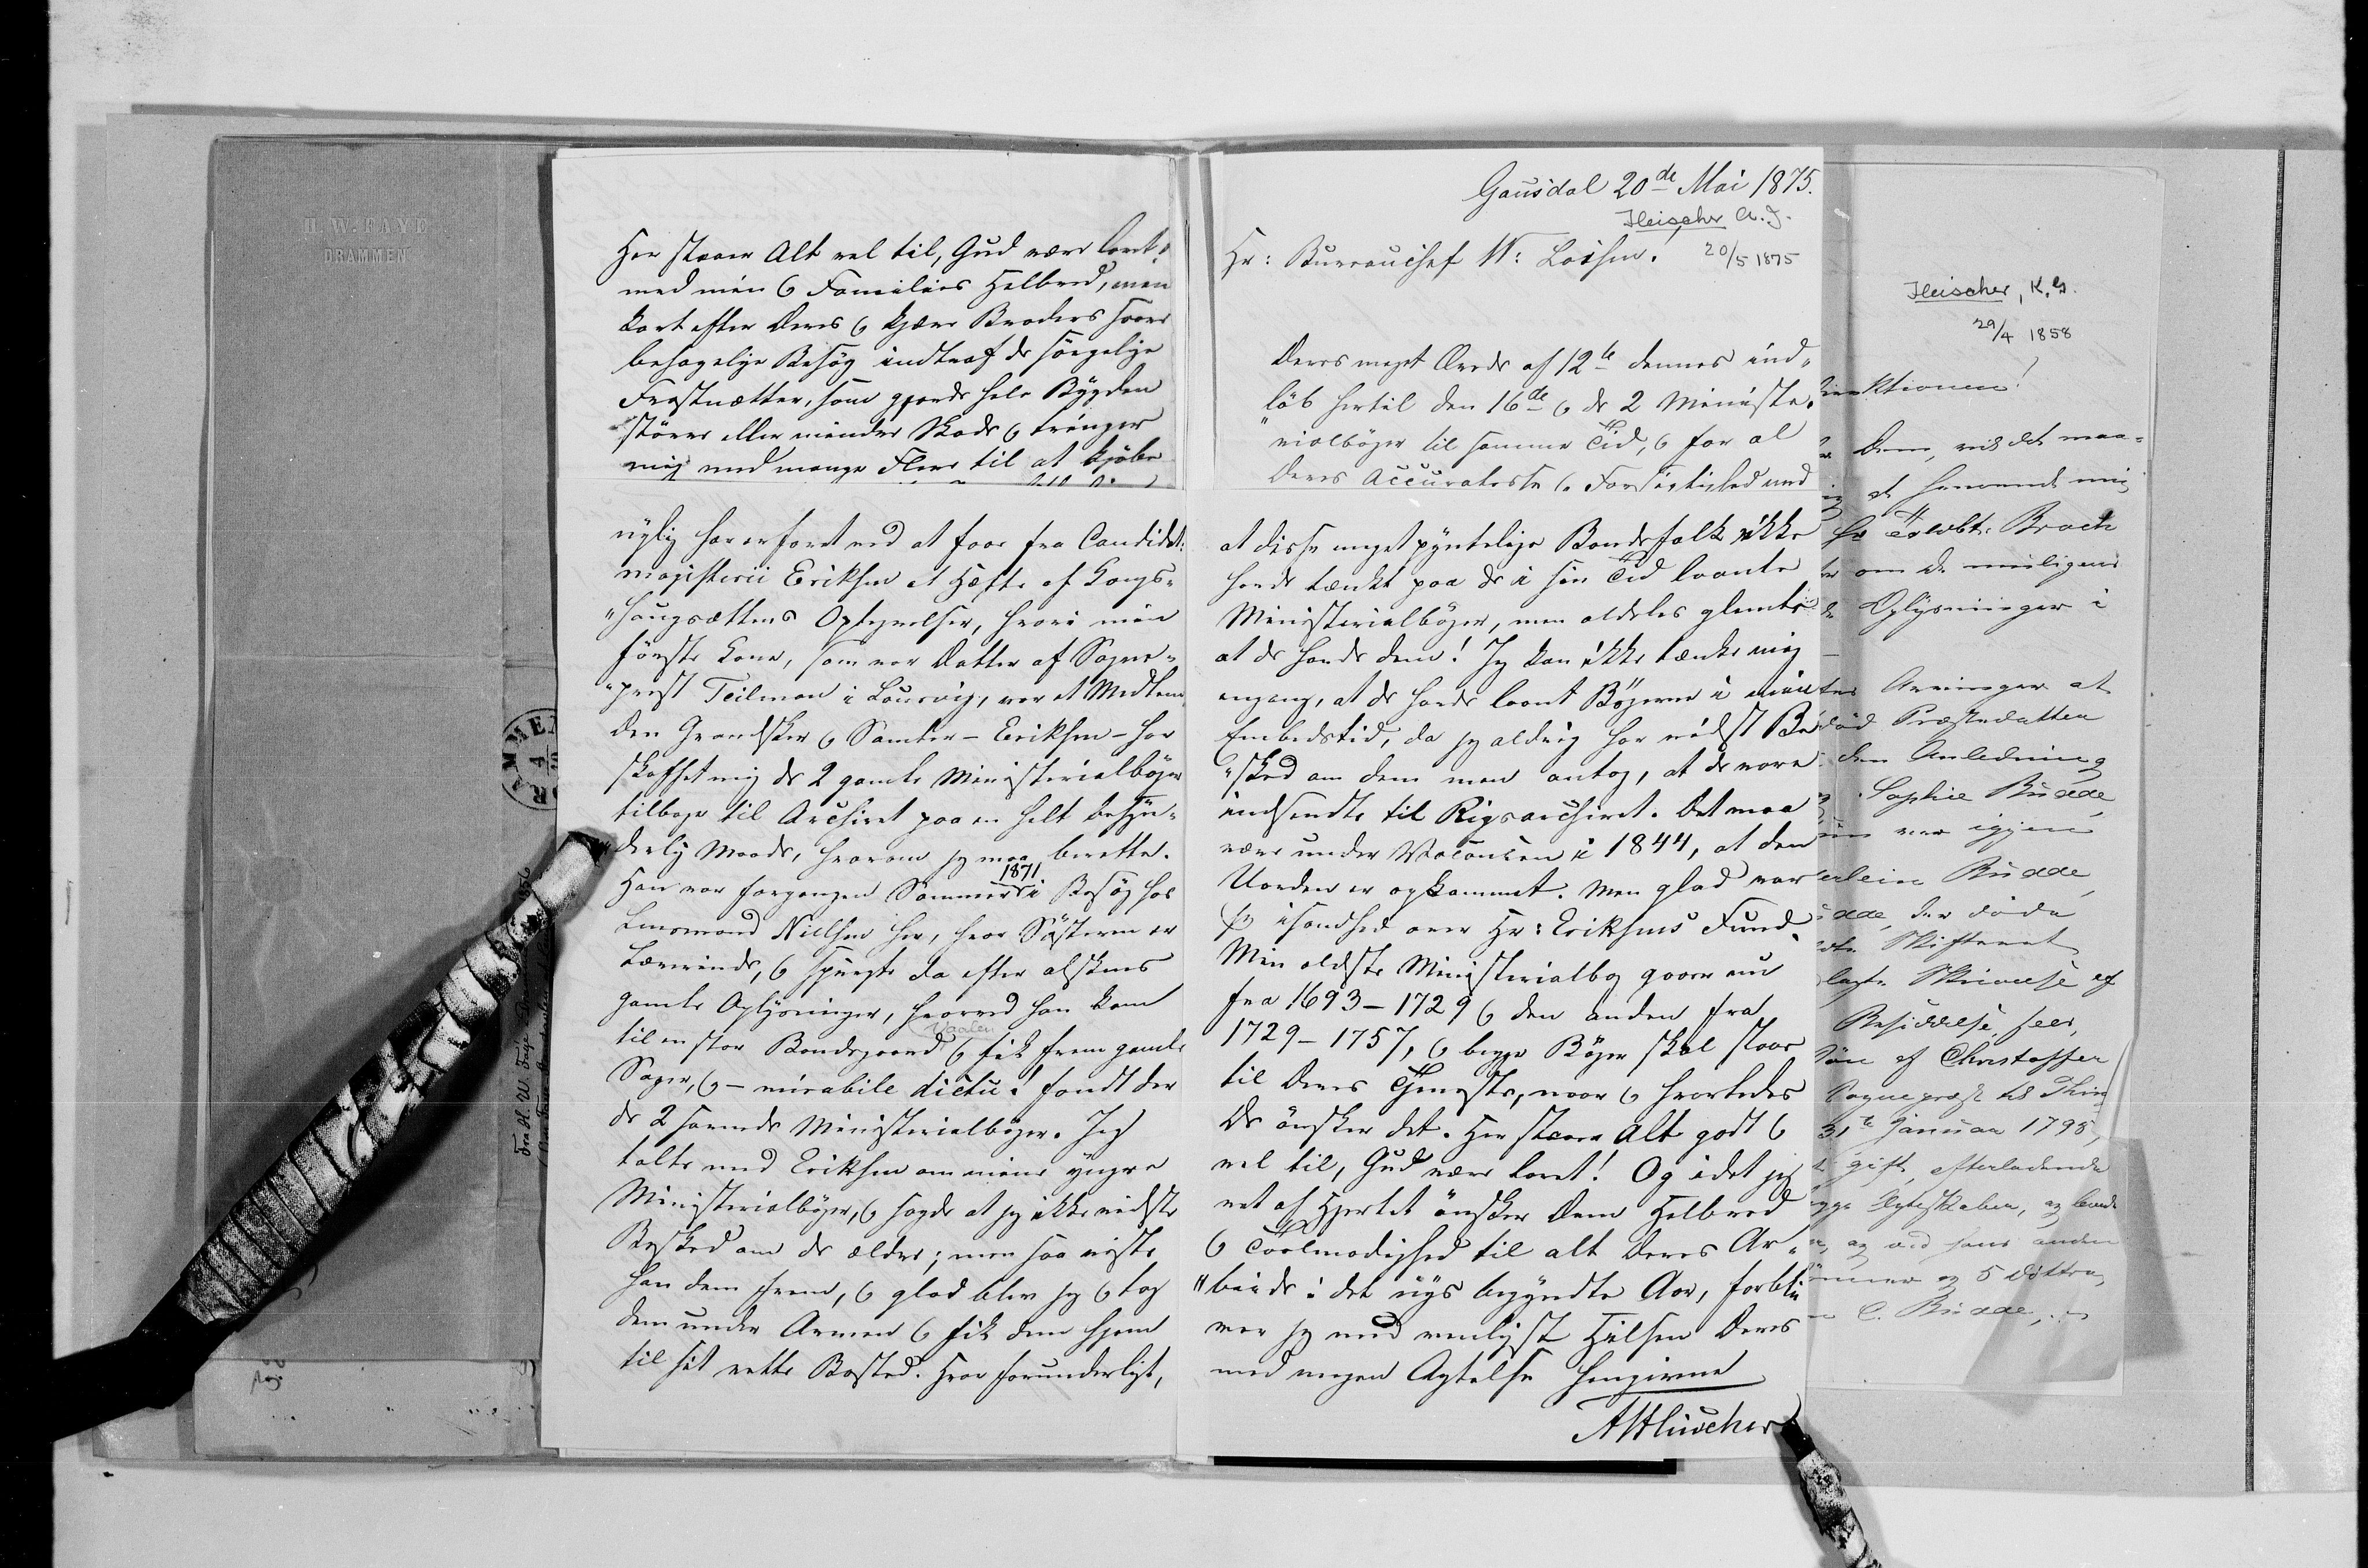 H. W. FAYE
DRAMMEN
Her staaer Alt vel til, Gud være lovet!
med min & Families Helbred, men
kort efter Deres & kjære Broders saare
behagelige Besøg indtraf de sørgelige
Frostnætter, som gjorde hele Bygden
større eller mindre Skade & tvinger
mig med mange Flere til at kjøbe
nylig har erfaret ved at faae fra Candidat:
magisterii Eriksen et Hefte af Kongs-
"haugsættens Optegnelser, hvori min
første Kone, som var Datter af Sogne-
"præst Teilman i Laurvig, var et Medlem
Den Grandsker & Samler - Eriksen - har
skaffet mig de 2 gamle Ministerialbøger
tilbage til Archivet paa en helt besyn-
"derlig Maade, hvorom jeg maa berette.
1871
Han var forgangen Sommer i Besøg hos
Lensmand Nielsen her, hvor Søsteren er
Lærerinde, & spurgte da efter alskens
gamle Oplysninger, hvorved han kom
Vaalen
til en stor Bondegaard & fik frem gamle
Sager, & - mirabile dictu! fandt der
de 2 savnede Ministerialbøger. Jeg
talte med Eriksen om mine yngre
Ministerialbøger, & sagde at jeg ikke vidste
Besked om de ældre; men saa viste
han dem frem, & glad blev jeg & tog
dem under Armen & fik dem hjem
til sit rette Bosted. Hvor forunderligt,
Gausdal 20de Mai 1875.
Fleischer A. F.
Hr: Bureauchef N: Lassen!
20/5 1875
Deres meget Ærede af 12te dennes ind-
"løb hertil den 16de & de 2 Ministe-
"rialbøger til samme Tid, & for al
Deres Accuratesse & Forsigtighed med
at disse meget pyntelige Bondefolk ikke
havde tænkt paa de i sin Tid laante
Ministerialbøger, men aldeles glemte
at de havde dem! Jeg kan ikke tænke mig
engang, at de havde laant Bøgerne i min
Embedstid, da jeg aldrig har vidst Be-
"sked om dem men antog, at de vare
indsendte til Rigsarchivet. Det maa
være under Vacancen i 1844, at den
Uorden er opkommet. Men glad var
jeg i Sandhed over Hr: Eriksens Fund.
Min ældste Ministerialbog gaaer nu
fra 1693-1729 & den anden fra
1729-1757, & begge Bøger skal staae
til Deres Tjeneste, naar & hvorledes
De ønsker det. Her staaer Alt godt &
vel til, Gud være lovet! Og idet jeg
ret af Hjertet ønsker Dem Helbred
& Taalmodighed til alt Deres Ar-
"beide i det nys begyndte Aar, forbli-
ver jeg med venligst Hilsen Deres
med megen Agtelse hengivne
A Fleischer
Fleischer, K. G.
29/4 1858
ktionen!
Dem, ved det maa-
at henvende mig
Brock
om de muligens
Oplysninger i
Arvinger at
Præstedatter
den Anledning
Sophie Budde
var igjen
Budde,
der døde
Skiftet
Skrivelse af
Besiddelse, sees,
Søn af Christopher
Sognepræst til Thin
31te Januar 1798,
gift, efterladende
Ægteskaber, og
og ved hans anden
og 5 Døttre
C. Budde,